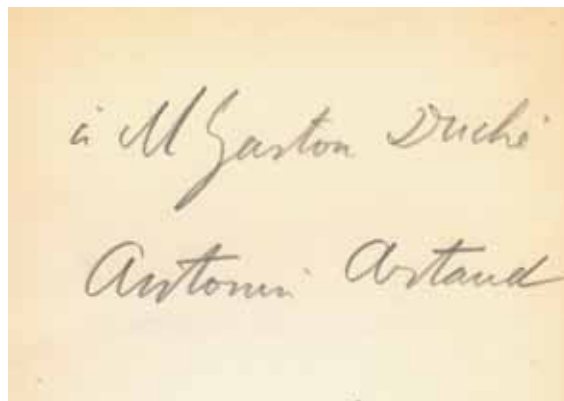 à M Gaston Duché
Antonin Artaud